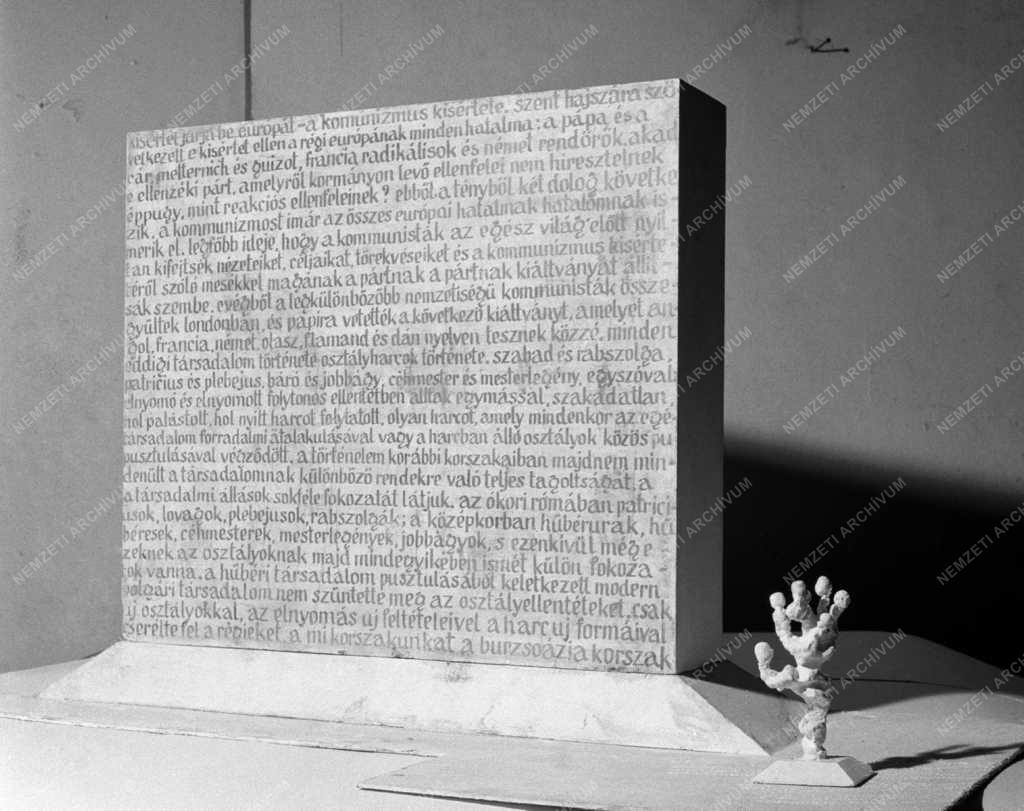 kisértet járja be európát – a komunizmus kisértete. szent hajszára szö
vetkezett e kisértet ellen a régi európának minden hatalma: a pápa és a
cár, metternich és guizot, francia radikálisok és német rendőrök. akad
e ellenzéki párt, amelyről kormányon levő ellenfelei nem hiresztelnek
éppugy, mint reakciós ellenfeleinek? ebből a tényből két dolog követke
zik. a kommunizmost imár az összes európai hatalmak hatalomnak is-
merik el. legfőbb ideje, hogy a kommunisták az egész világ előtt nyil-
tan kifejtsék nézeteiket, céljaikat, törekvéseiket és a kommunizmus kisérte-
téről szóló mesékkel magának a pártnak a pártnak kiáltványát állit
sák szembe. evégből a legkülönbözőbb nemzetiségü kommunisták össze-
gyültek londonban, és papira vetették a következő kiáltványt, amelyet an-
gol, francia, német, olasz, flamand és dán nyelven tesznek közzé. minden
eddigi társadalom története osztályharcok története. szabad és rabszolga,
patricius és plebejus, báró és jobbágy, céhmester és mesterlegény, egyszóval
elnyomó és elnyomott folytonos ellentétben álltak egymással, szakadatlan,
hol palástolt, hol nyilt harcot folytatott, olyan harcot, amely mindenkor az egé-
társadalom forradalmi átalakulásával vagy a harcban álló osztályok közös pu
pusztulásával végződött. a történelem korábbi korszakaiban majdnem min-
denütt a társadalomnak különböző rendekre való teljes tagoltságát, a
a társadalmi állások sokféle fokozatát látjuk. az ókori rómában patrici-
usok, lovagok, plebejusok, rabszolgák; a középkorban hűbérurak, hű
béresek, céhmesterek, mesterlegények, jobbágyok, s ezenkivül még e
zeknek az osztályoknak majd mindegyikében ismét külön fokoza-
tok vanna. a hűbéri társadalom pusztulásából keletkezett modern
polgári társadalom nem szüntette meg az osztályellentéteket. csak
uj osztályokkal, az elnyomás uj feltételeivel a harc uj formáival
cserélte fel a régieket. a mi korszakunkat a burzsoázia korszak
NEMZETI ARCHÍVUM